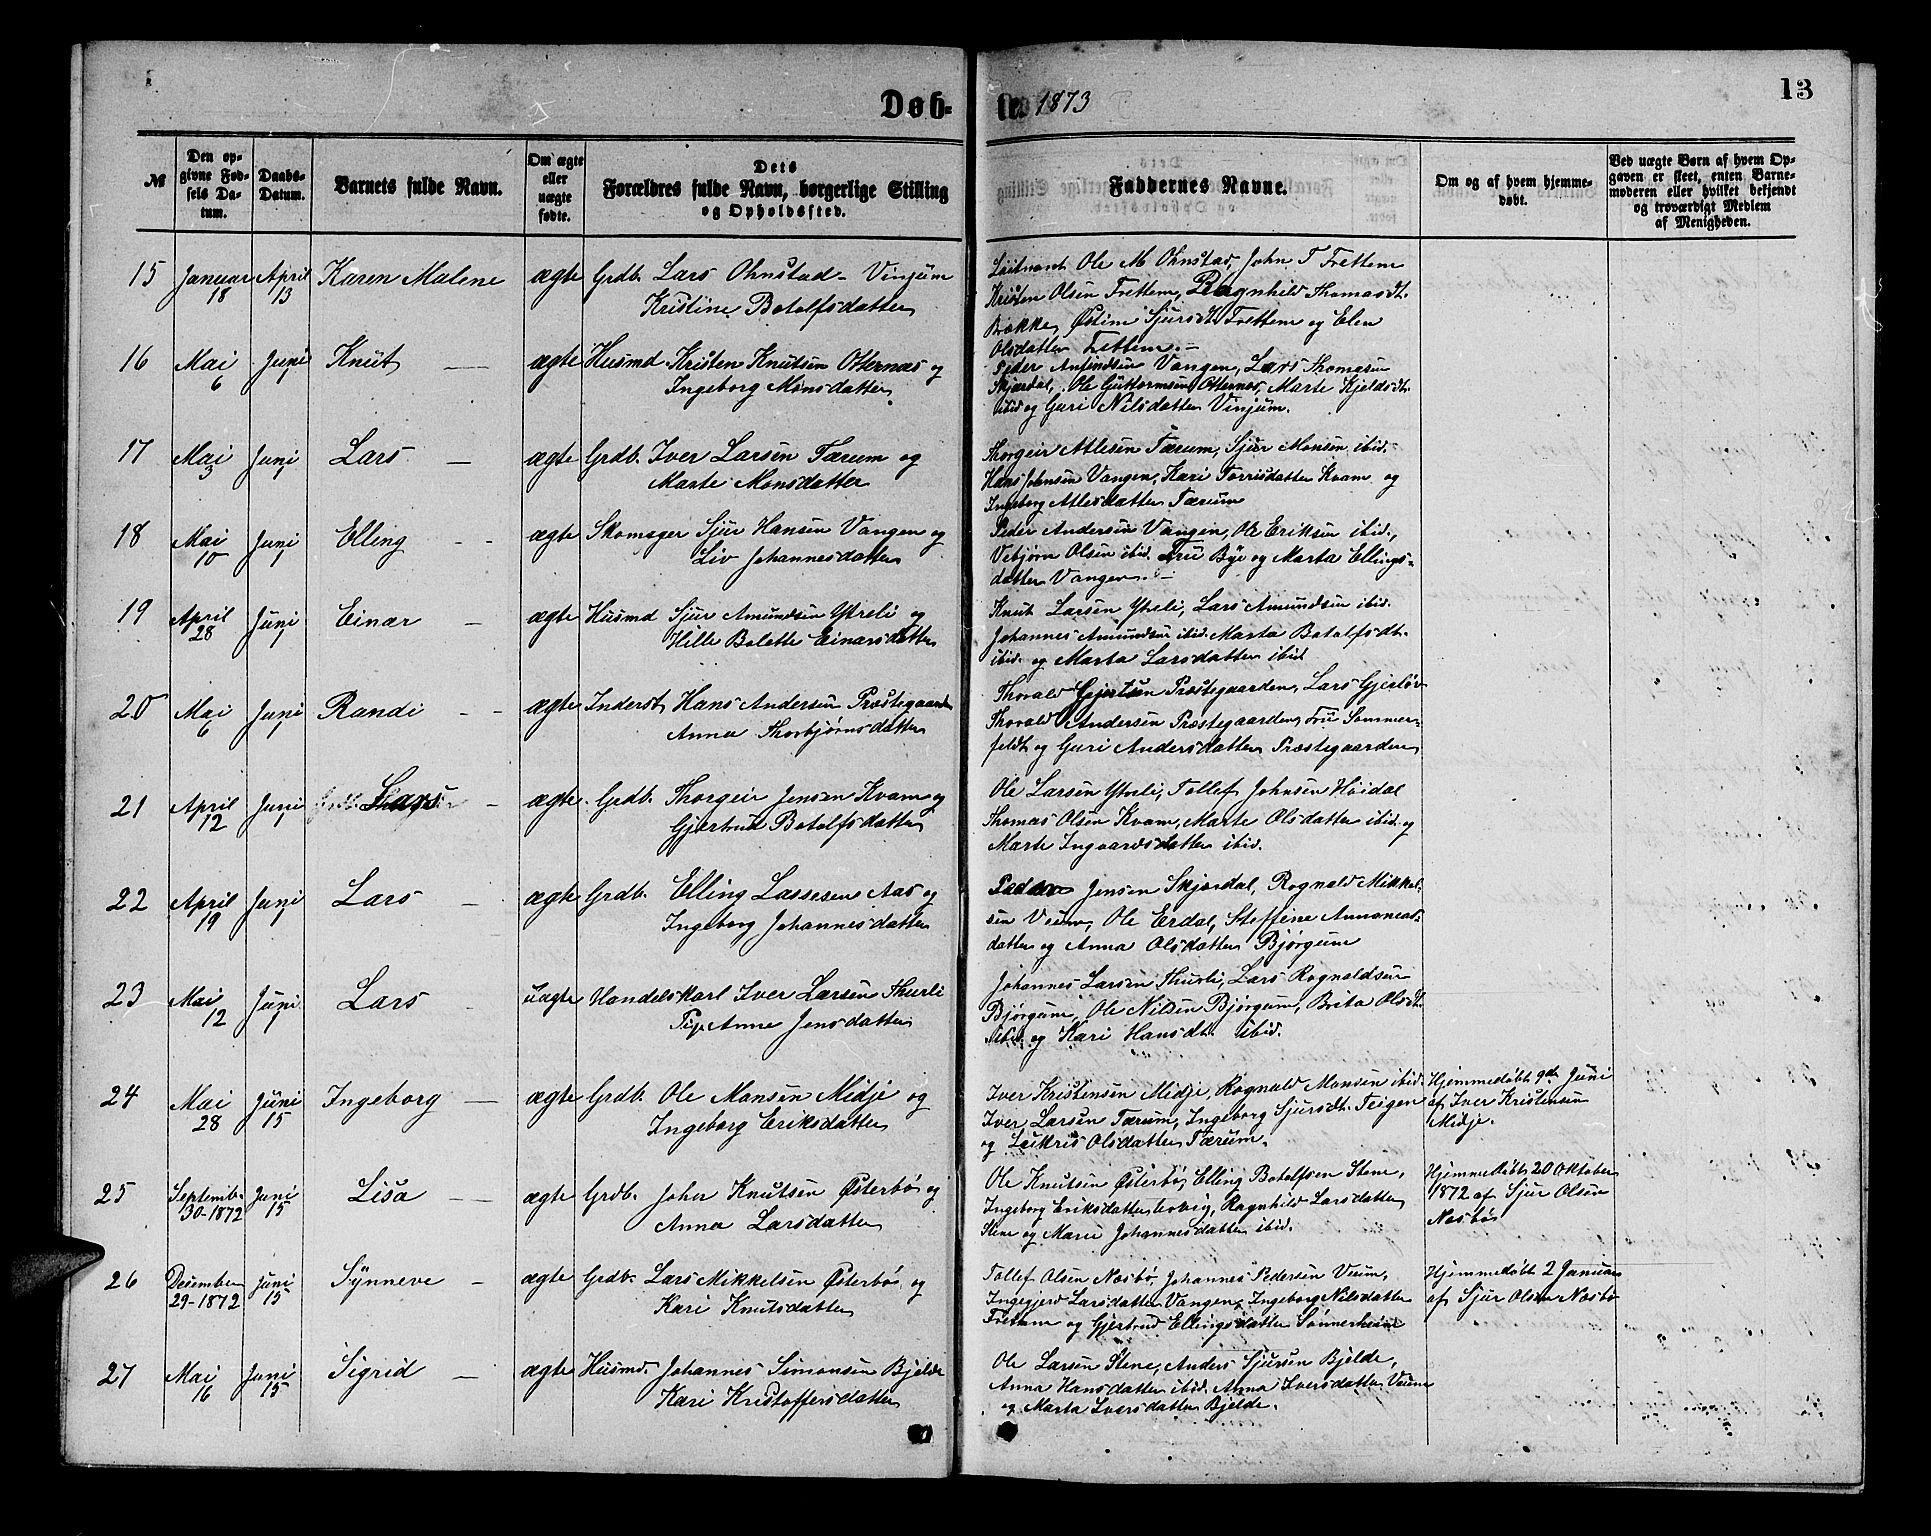 Døb-
te. 1873
13
№
Den op-
givne Fød-
sels Da-
tum.
Daabs-
Datum.
Barnets fulde Navn.
Om ægte
eller
uægte
fødte.
Dets
Forældres fulde Navn, borgerlige Stilling
og Opholdssted.
Faddernes Navne.
Om og af hvem hjemme-
døbt.
Ved uægte Børn af hvem Op-
gaven er skeet, enten Barne-
moderen eller hvilket bekjendt
og troværdigt Medlem
af Menigheden.
15 Januar 18 April 13 Karen Malene ægte Grdb. Lars Ohnstad - Vinjum
Kristine Botolfsdatter
Løitnant Ole M Ohnstad, John T Frettem
Kristen Olsen Frettem, Ragnhild Thomasdt.
Brække, Østine Sjursdt. Frettem og Elen
Olsdatter Frettem. -
16 Mai 6 Juni 1 Knut - ægte Husmd. Kristen Knutsen Otternæs og
Ingeborg Monsdatter
Peder Anfindsen Vangen, Lars Thomesen
Skjærdal, Ole Guttormsen Otternæs, Marte Kjeldsdt.
ibid og Guri Nilsdatter Vinjum.
17 Mai 3 Juni 1 Lars - ægte Grdb. Iver Larsen Tærum og
Marte Monsdatter
Thorgeir Atlesen Tærum, Sjur Monsen ibid.
Hans Johnsen Vangen, Kari Torrisdatter Kvam og
Ingeborg Atlesdatter Tærum
18 Mai 10 Juni 1 Elling - - ægte Skomager Sjur Hansen Vangen og
Liv Johannesdatter
Peder Andersen Vangen, Ole Eriksen ibid.,
Vebjørn Olsen ibid. Fru Bye og Marta Ellings-
datter Vangen. -
19 April 28 Juni 1 Einar - ægte Husmd Sjur Amundsen Ytreli og
Hille Bolette Einarsdatter
Knut Larsen Ytreli, Lars Amundsen ibid.
Johannes Amundsen ibid. Marta Botolfsdt.
ibid. og Marta Larsdatter ibid
20 Mai 6 Juni 1 Randi - - ægte Inderst Hans Andersen Præstegaarden
Anna Thorbjørnsdatter
Thorald Gjertsen Præstegaarden, Lars Gjerløv
Thorald Andersen Præstegaarden, Fru Sommer-
feldt og Guri Andersdatter Præstegaarden
21 April 12 Juni 1 Lars - ægte Grdb. Thorgeir Jensen Kvam og
Gjertrud Botolfsdatter
Ole Larsen Ytreli, Tollef Johnsen Høidal
Thomas Olsen Kvam, Marte Olsdatter ibid og
Marte Ingvardsdatter ibid.
22 April 19 Juni 1 Lars - ægte Grdb. Elling Lassesen Aas og
Ingeborg Johannesdatter
Peder Jensen Skjærdal, Rognald Mikkel-
sen Veum, Ole Erdal, Steffine Annanias-
datter og Anna Olsdatter Bjørgum
23 Mai 12 Juni 1 Lars - uægte Handelskarl Iver Larsen Thurli
Pige Anne Jensdatter
Johannes Larsen Thurli, Lars Rognaldsen
Bjørgum, Ole Nilsen Bjørgum, Brita Olsdt.
ibid og Kari Hansdt. ibid.
24 Mai 28 Juni 15 Ingeborg - ægte Grdb. Ole Monsen Midje og
Ingeborg Eriksdatter
Iver Kristensen Midje, Rognald Monsen ibid.
Iver Larsen Tærum, Ingeborg Sjursdt. Teigen
og Leikris Olsdatter Tærum.
Hjemmedøbt 9de Juni
af Iver Kristensen
Midje.
25 Septemb. 30-1872 Juni 15 Lisa - ægte Grdb. Joher Knutsen Østerbø og
Anna Larsdatter
Ole Knutsen Østerbø, Elling Botolfsen Stene,
Ingeborg Eriksdatter , Ragnhild Larsdatter
Stene og Marie Johannesdatter ibid.
Hjemmedøbt 20 Oktober
1872 af Sjur Olsen
Næsbø
26 Desember 29-1872 Juni 15 Synneve - ægte Grdb. Lars Mikkelsen Østerbø og
Kari Knutsdatter
Tollef Olsen Næsbø, Johannes Pedersen Veum,
Ingegjerd Larsdatter Vangen, Ingeborg Nilsdatter
Fretem og Gjertrud Ellingsdatter Sønnerheim
Hjemmedøbt 2 Januar
af Sjur Olsen Næsbø
27 Mai 16 Juni 15 Sigrid - ægte Husmd. Johannes Simonsen Bjelde
Kari Kristoffersdatter
Ole Larsen Stene, Anders Sjursen Bjelde,
Anna Hansdatter ibid. Anna Iversdatter Veum
og Marta Iversdatter Bjelde.